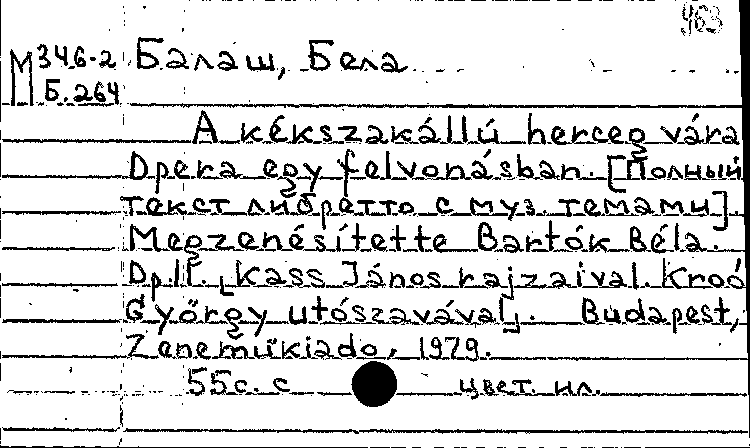 963
М346-2 Балаш, Бела
Б.264
A kékszakállú herceg vára
Opera egy felvonásban. [Полный
текст либретто с муз. темами].
Megzenésítette Bartók Béla.
Op.11. [Kass János rajzaival. Kroó
György utószavával]. Budapest,
Zeneműkiado, 1979.
55с. с цвет. ил.